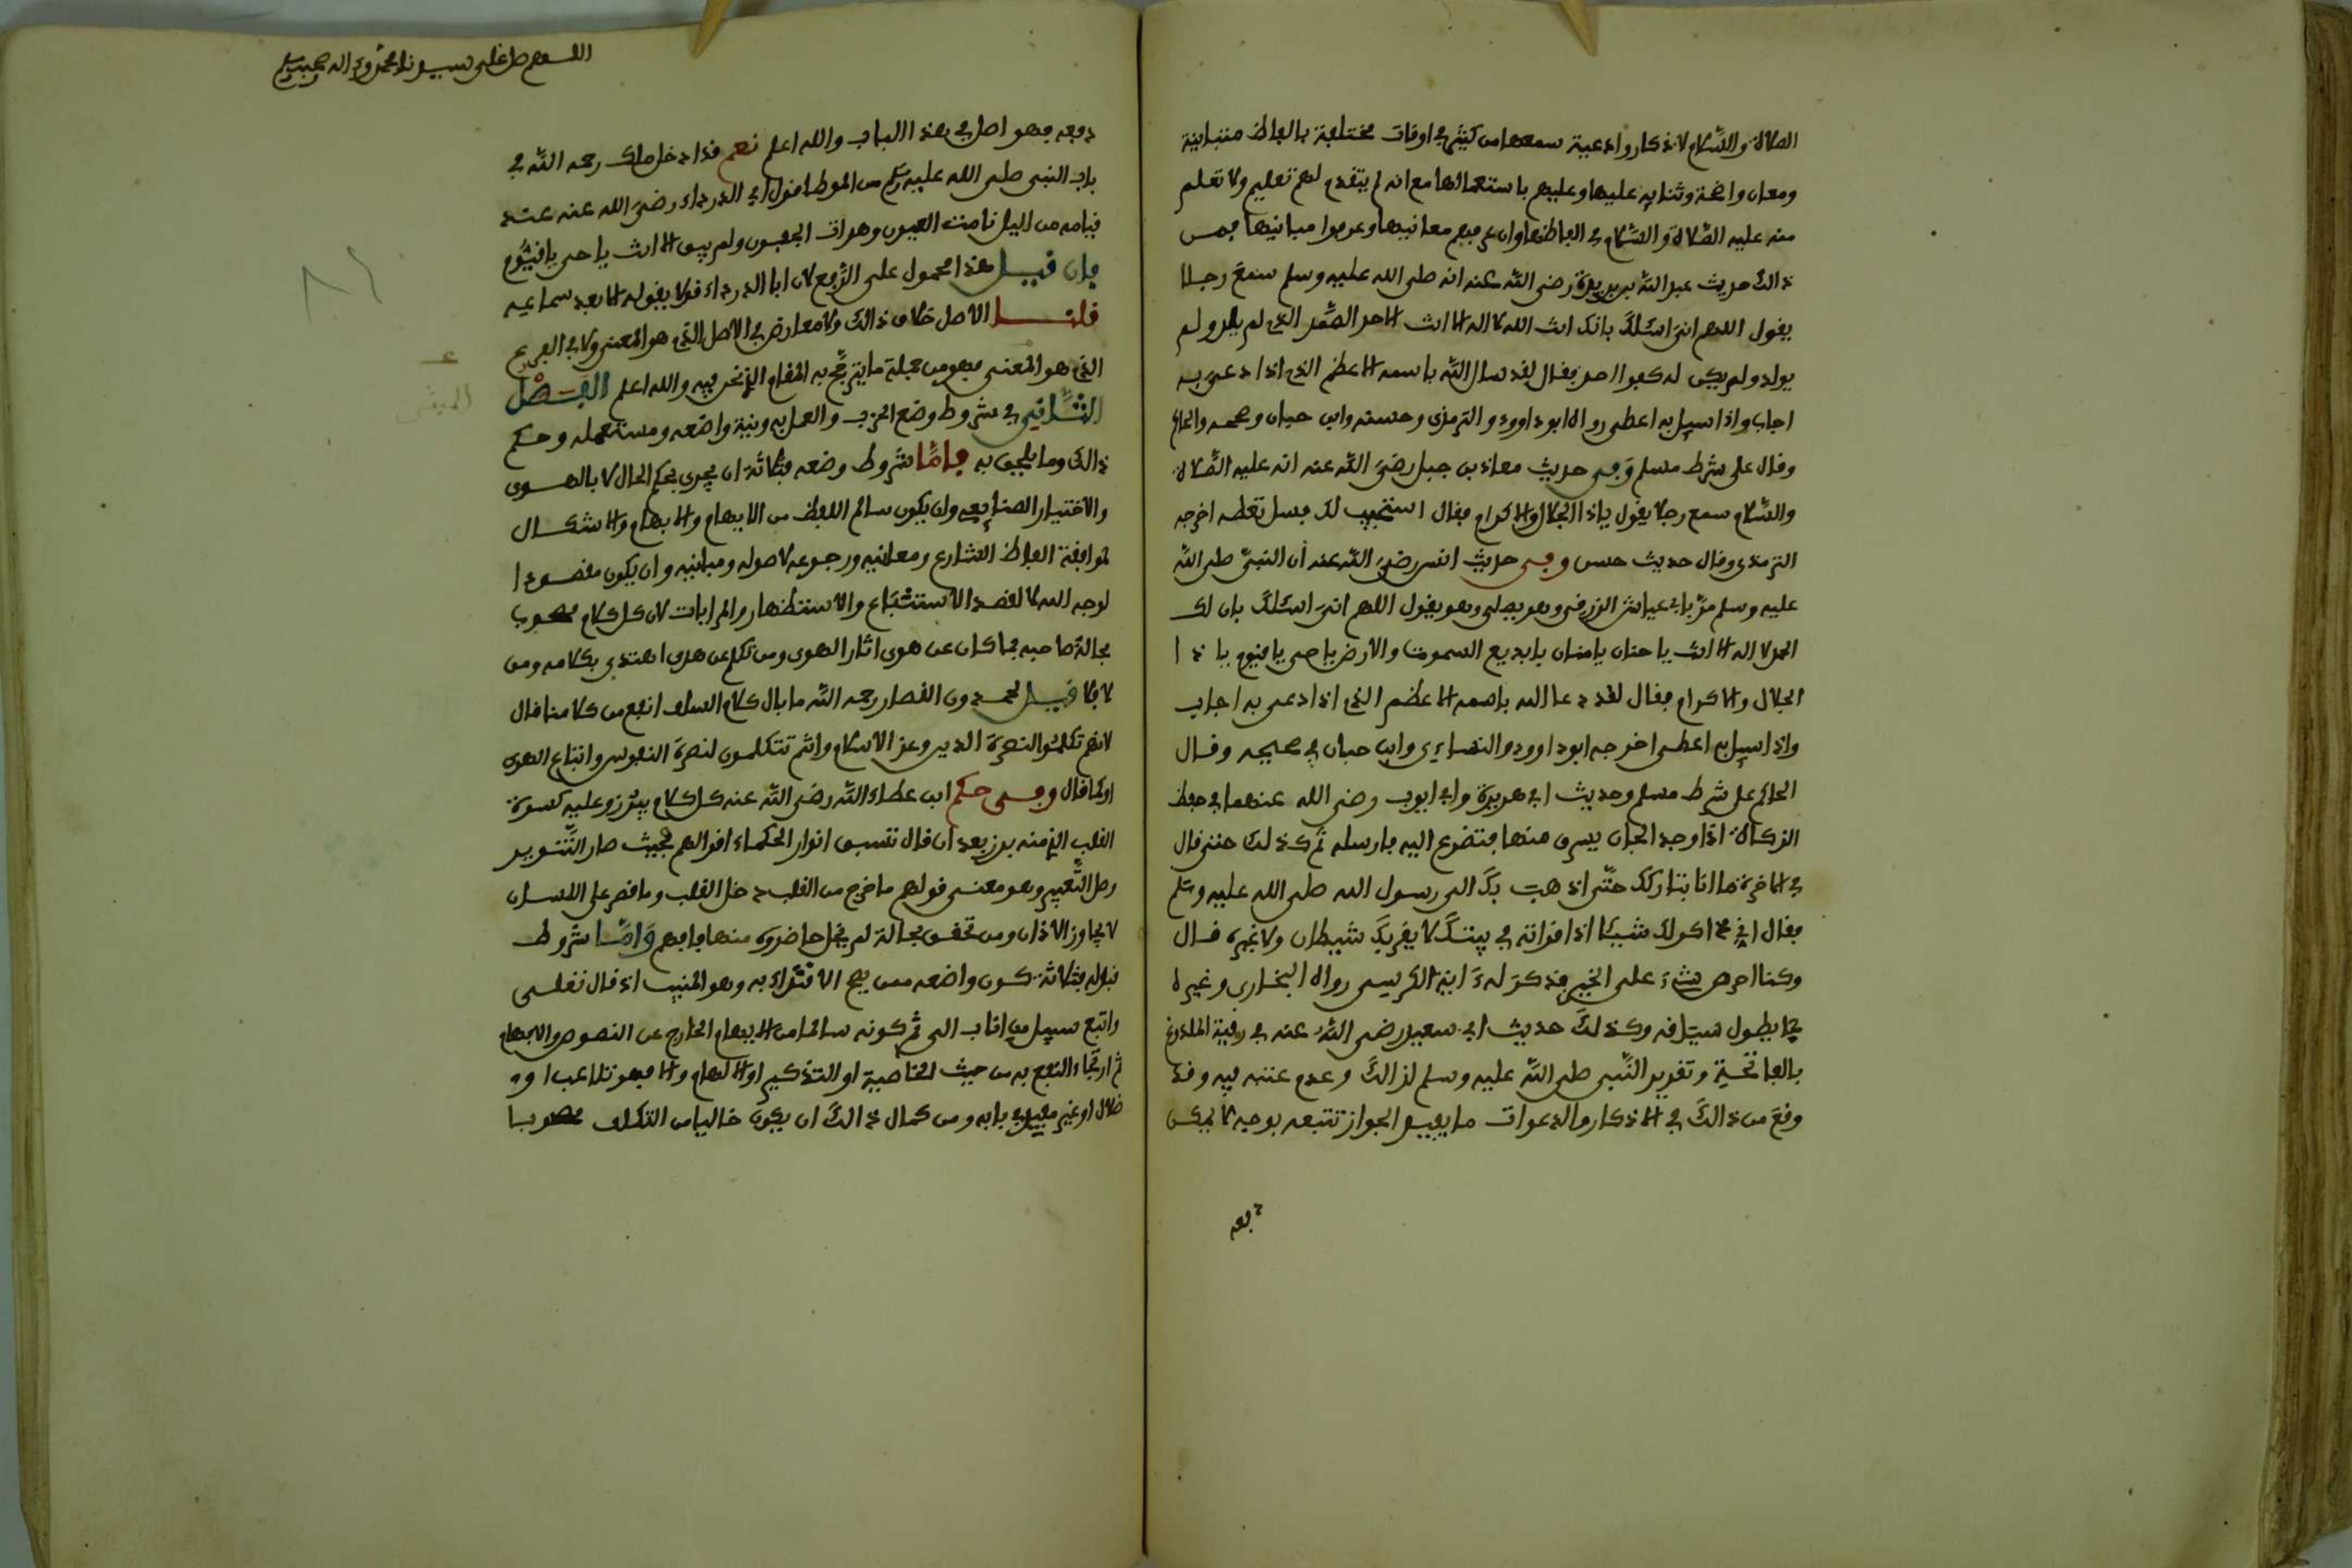 الصلاة والسلام لاذكار وادعية سمعها من كثير في اوقات مختلفة بالفاظ متباينة
ومعان واضحة وثنايه عليها وعليهم باستعمالها مع انه لم يتقدم لهم تعليم ولا تعلم
منه عليه الصلاة والسلام في الفاظها وان عم فيهم معانيها وعرفوا مبانيها فمن
ذالك حديث عبد الله بن بريدة رضي الله عنه انه صلى الله عليه وسلم سمع رجلا
يقول اللهم اني اسئلك بانك انت الله لا اله الا انت الاحد الصمد الذي لم يلد ولم
يولد ولم يكن له كفوا احد فقال لقد سال الله باسمه الاعظم الذي اذا دعي به
اجاب واذا سيل به اعطى رواه ابو داوود والترمذي وحسنه وابن حبان وصححه والحاكم
وقال على شرط مسلم وفي حديث معاذ بن جبل رضي الله عنه انه عليه الصلاة
والسلام سمع رجلا يقول ياذا الجلال والاكرام فقال استجيب لك فسل تعطه اخرجه
الترمذي وقال حديث حسن وفي حديث انس رضي الله عنه ان النبي صلى الله
عليه وسلم مر بابي عياش الزرقي وهو يصلي وهو يقول اللهم اني اسئلك بان لك
الحمد لا اله الا انت يا حنان يا منان يا بديع السموت والارض يا حي يا قيوم يا ذا
الجلال والاكرام فقال لقد دعا الله باسمه الاعظم الذي اذا دعي به اجاب
واذا سيل به اعطى اخرجه ابو داوود والنساءي وابن حبان في صحيحه وقال
الحاكم على شرط مسلم وحديث ابي هريرة وابي ايوب رضي الله عنهما في حفظ
الزكاة اذا وجد الجان يسرق منها فتضرع اليه فارسله ثم كذلك حتى قال
في الاخرة ما انا بتاركك حتى اذهب بك الى رسول الله صلى الله عليه وسلم
فقال اني ذاكر لك شيئا اذا قراته في بيتك لا يقربك شيطان ولا غيره قال
وكنا احرص شيء على الخير فذكر له ءاية الكرسي رواه البخاري وغيره
مما يطول سياقه وكذلك حديث ابي سعيد رضي الله عنه في رقية الملدوغ
بالفاتحة وتقرير النبي صلى الله عليه وسلم لذالك وعدم عتبه فيه وقد
وقع من ذالك في الاذكار والدعوات ما يفيد الجواز تتبعه بوجه لا يمكن
دفعه
اللهم صل على سيدنا محمد وءاله وصحبه وسلم
دفعه فهو اصل في هذا الباب والله اعلم نعم قد ادخل ملك رحمه الله في
باب النبي صلى الله عليه وسلم من الموطا قول ابي الدرداء رضي الله عنه عند
قيامه من اليل نامت العيون وهدات الجفون ولم يبق الا انت يا حي يا قيوم
فان قيل هذا محمول على الرفع لان ابا الدرداء قد لا يقوله الا بعد سماعه
قلنا الاصل خلاف ذالك ولا معارض في الاصل الذي هو المعنى ولا في الفرع
الذي هو المعنى فهو من جملة ما يترجح به المقام الذي نحن فيه والله اعلم الفصل
الثاني في شروط وضع الحزب والعمل به ونية واضعه ومستعمله وحكم
ذالك وما يلحق به فاما شروط وضعه فثلاثة ان يجري بحكم الحال لا بالهوى
والاختيار الصنايعي وان يكون سالم اللفظ من الايهام والابهام والاشكال
لموافقة الفاظ الشارع ومعانيه ورجوعه لاصوله ومبانيه وان يكون مقصودا
لوجه الله لا لقصد الاستتباع والاستظهار والمرابات لان كل كلام مصحوب
بحالة صاحبه فما كان عن هوى اثار الهوى ومن تكلم عن هدى اهتدى بكلامه ومن
لا فلا قيل لحمدون القصار رحمه الله ما بال كلام السلف انفع من كلامنا قال
لانهم تكلموا لنصرة الدين وعز الاسلام وانتم تتكلمون لنصرة النفوس واتباع الهوى
او كما قال وفي حكم ابن عطاء الله رضي الله عنه كل كلام يبرز وعليه كسوة
القلب الذي منه برز بعد ان قال تسبق انوار الحكماء اقوالهم فحيث صار التنوير
وصل التعبير وهو معنى قولهم ما خرج من القلب دخل القلب وما قصر على اللسان
لا يجاوز الاذان ومن تحقق بحالة لم يخل حاضروه منها فافهم واما شروط
قبوله فثلاثة كون واضعه ممن يصح الاقتداء به وهو المنيب اذ قال تعالى
واتبع سبيل من اناب الى ثم كونه سالما من الابهام الخارج عن النصوص والايهام
ثم ارتجاء النفع به من حيث الخاصية او التذكير او الالهام والا فهو تلاعب او
ضلال او غير مفيد في بابه ومن كمال ذالك ان يكون خاليا من التكلف مصحوبا